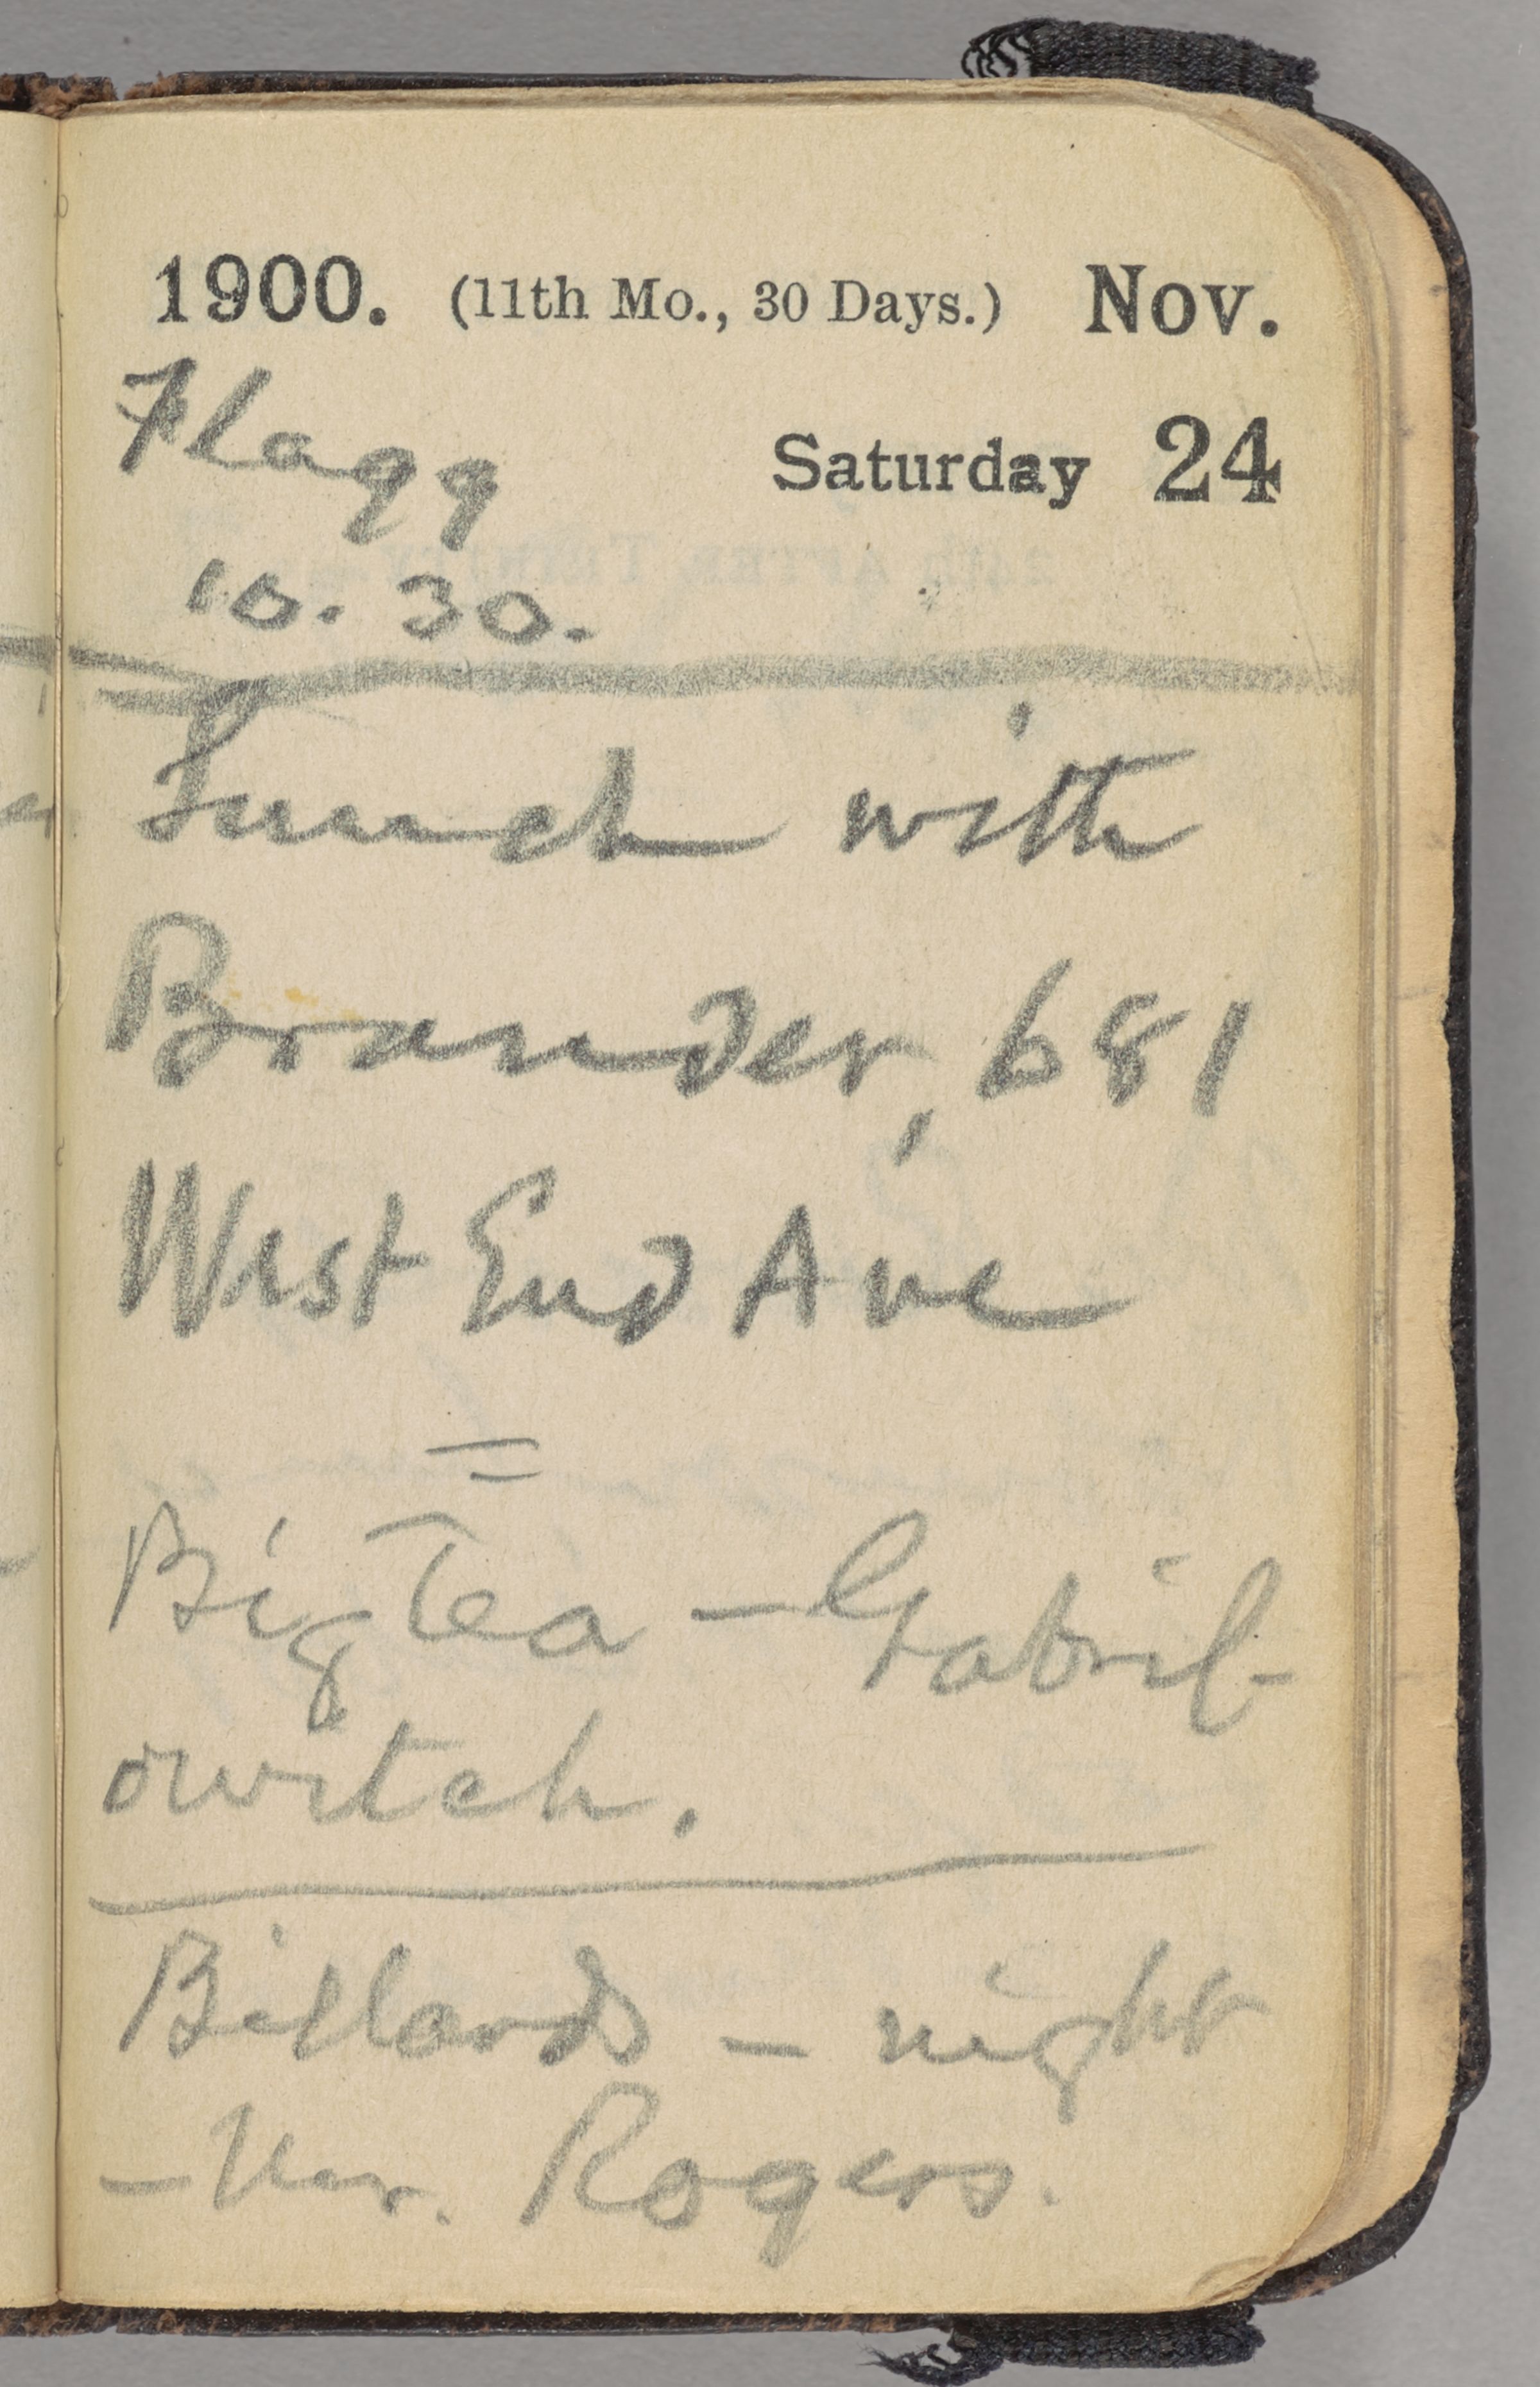 1900. (11th Mo., 30 Days.) Nov.
Flagg
Saturday 24
10. 30.
Lunch with
Brander, 681
West End Ave
=
Big Tea — Gabril-
owitch.
Billards — night
— Mr. Rogers.